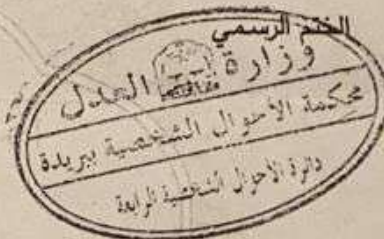 الختم الرسمي
وزارة العدل
محكمة الأحوال الشخصية ببريدة
دائرة الأحوال الشخصية الرابعة